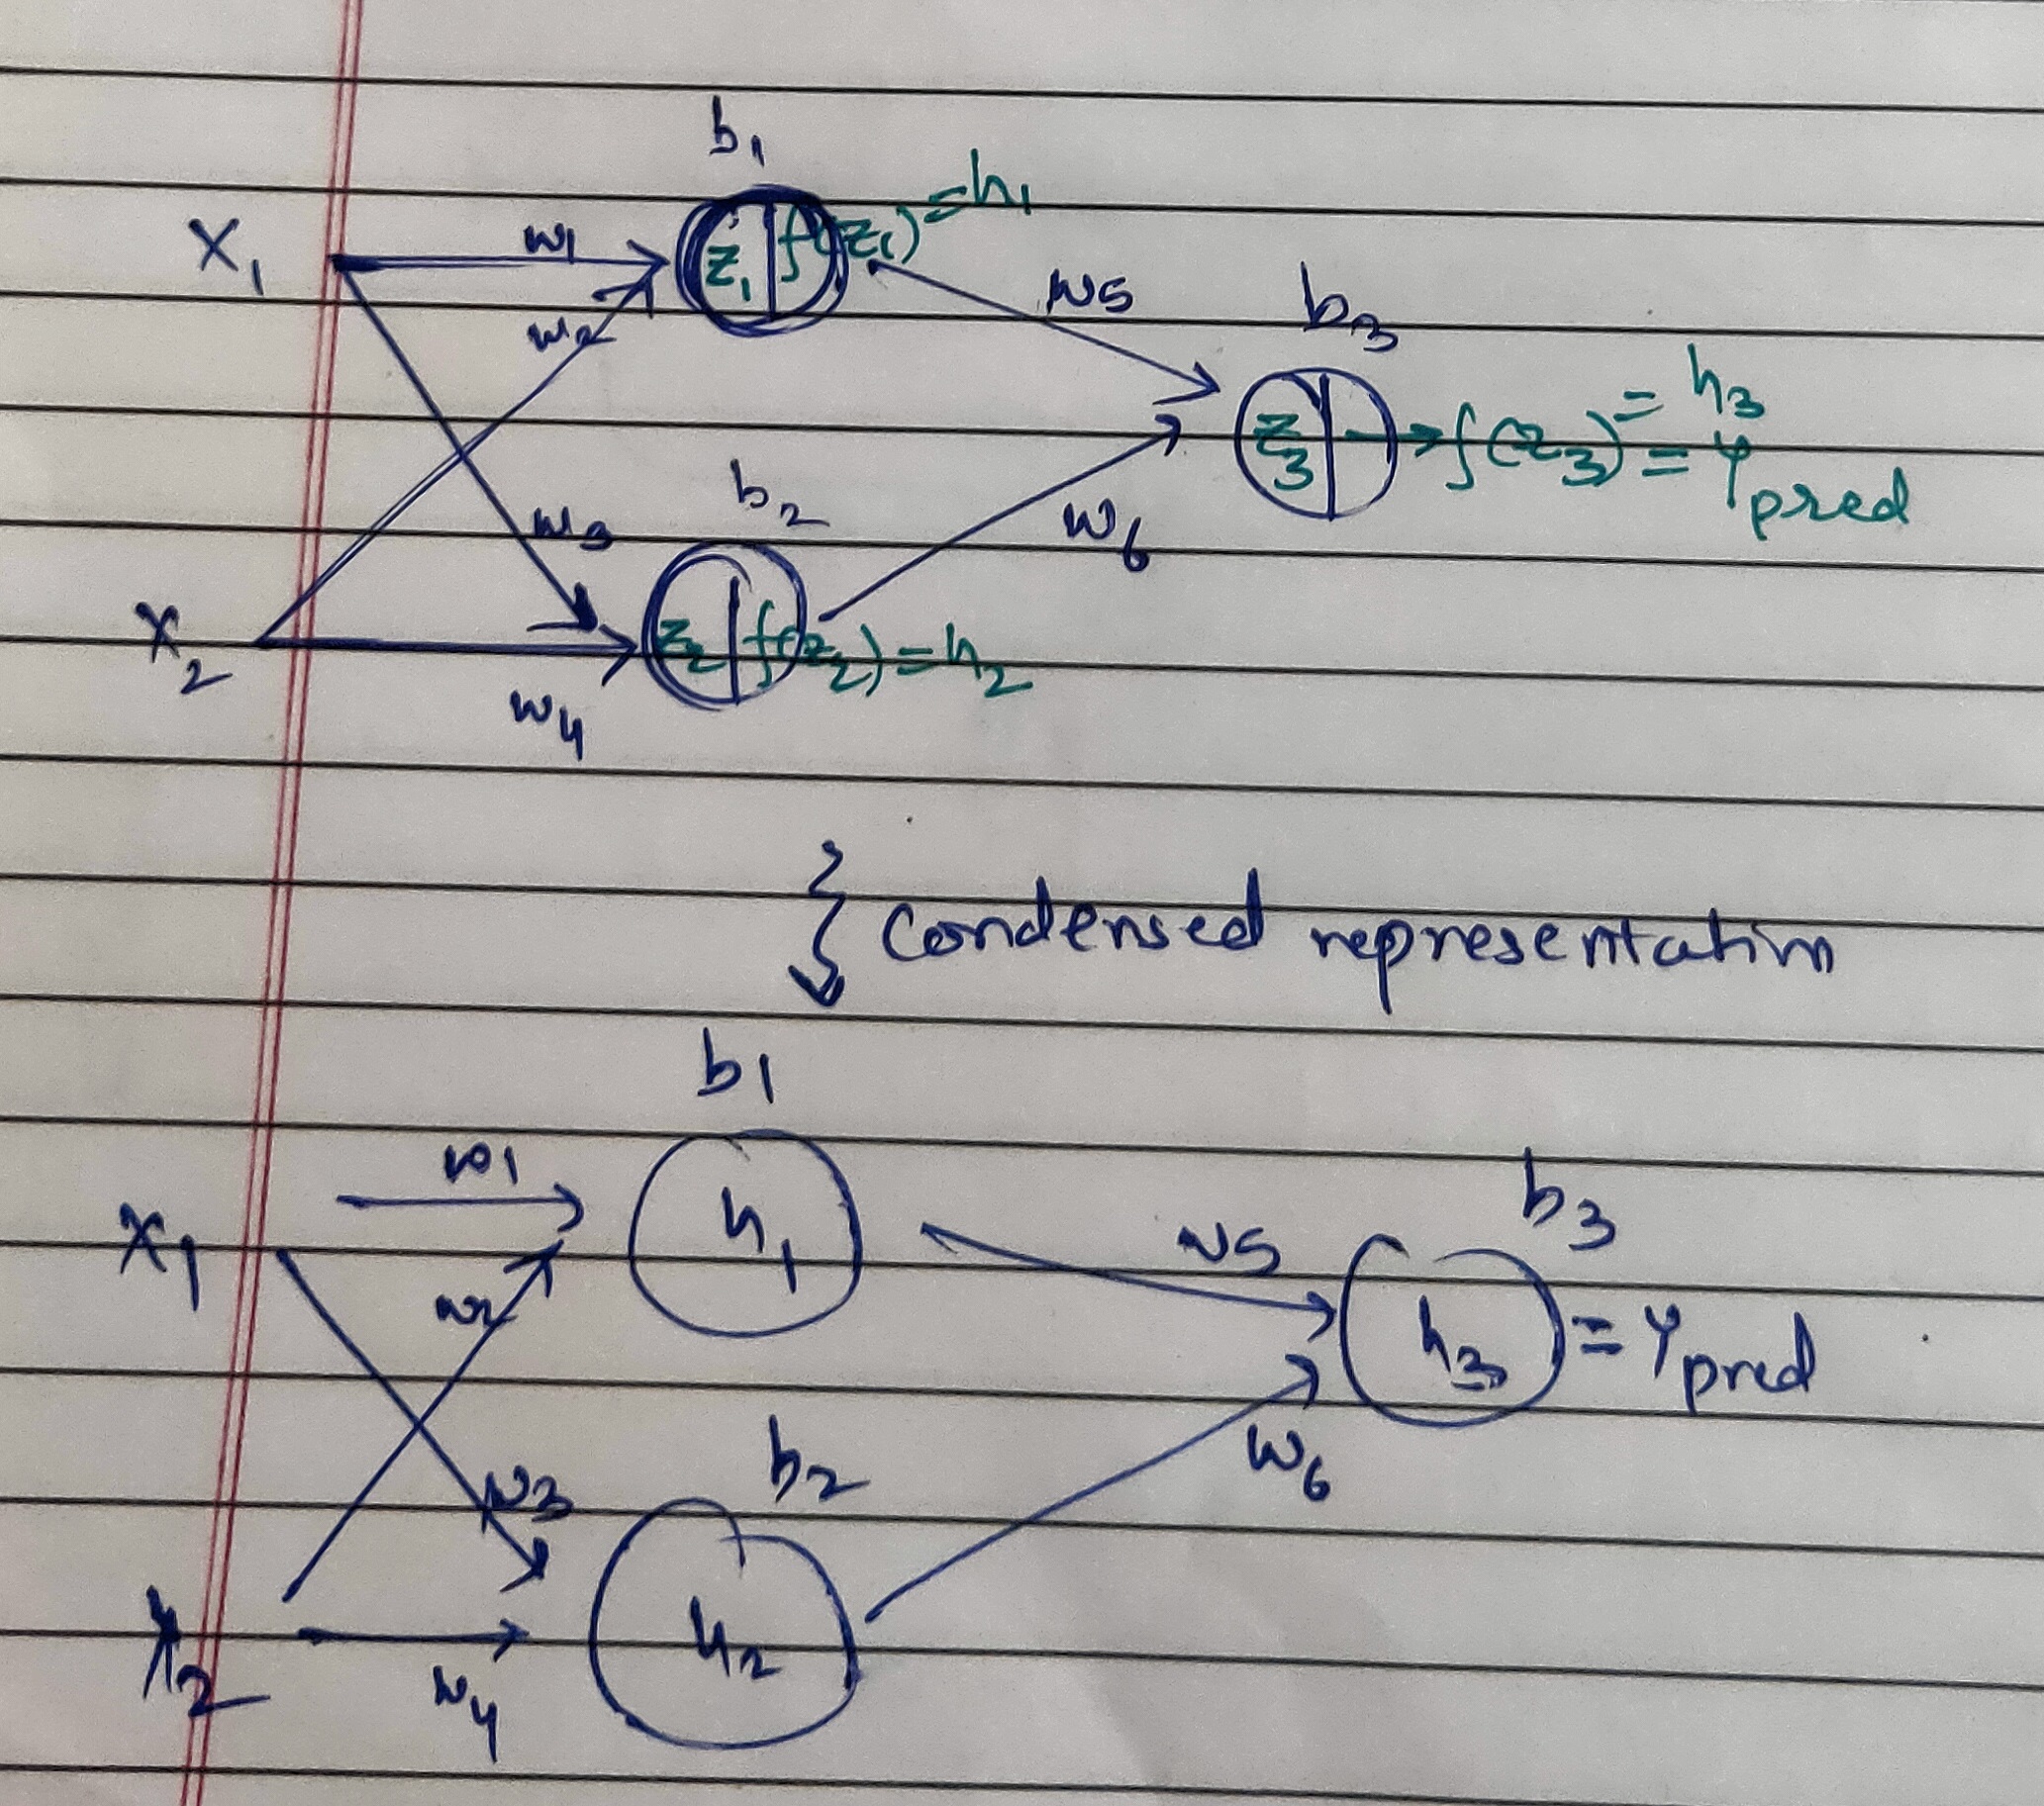 b1
x1 w1 z1 f(z1) = h1
w2 w5 b3
z3 f(z3) = h3
= Ypred
b2
w3 w6
x2 z2 f(z2) = h2
w4
Condensed representation
b1
w1 b3
x1 h1 w5
w2 h3 = Ypred
b2 w6
w3
x2 h2
w4